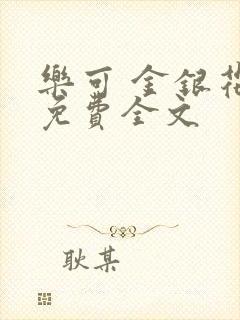 樂可 金銀花
免費全文
耿某